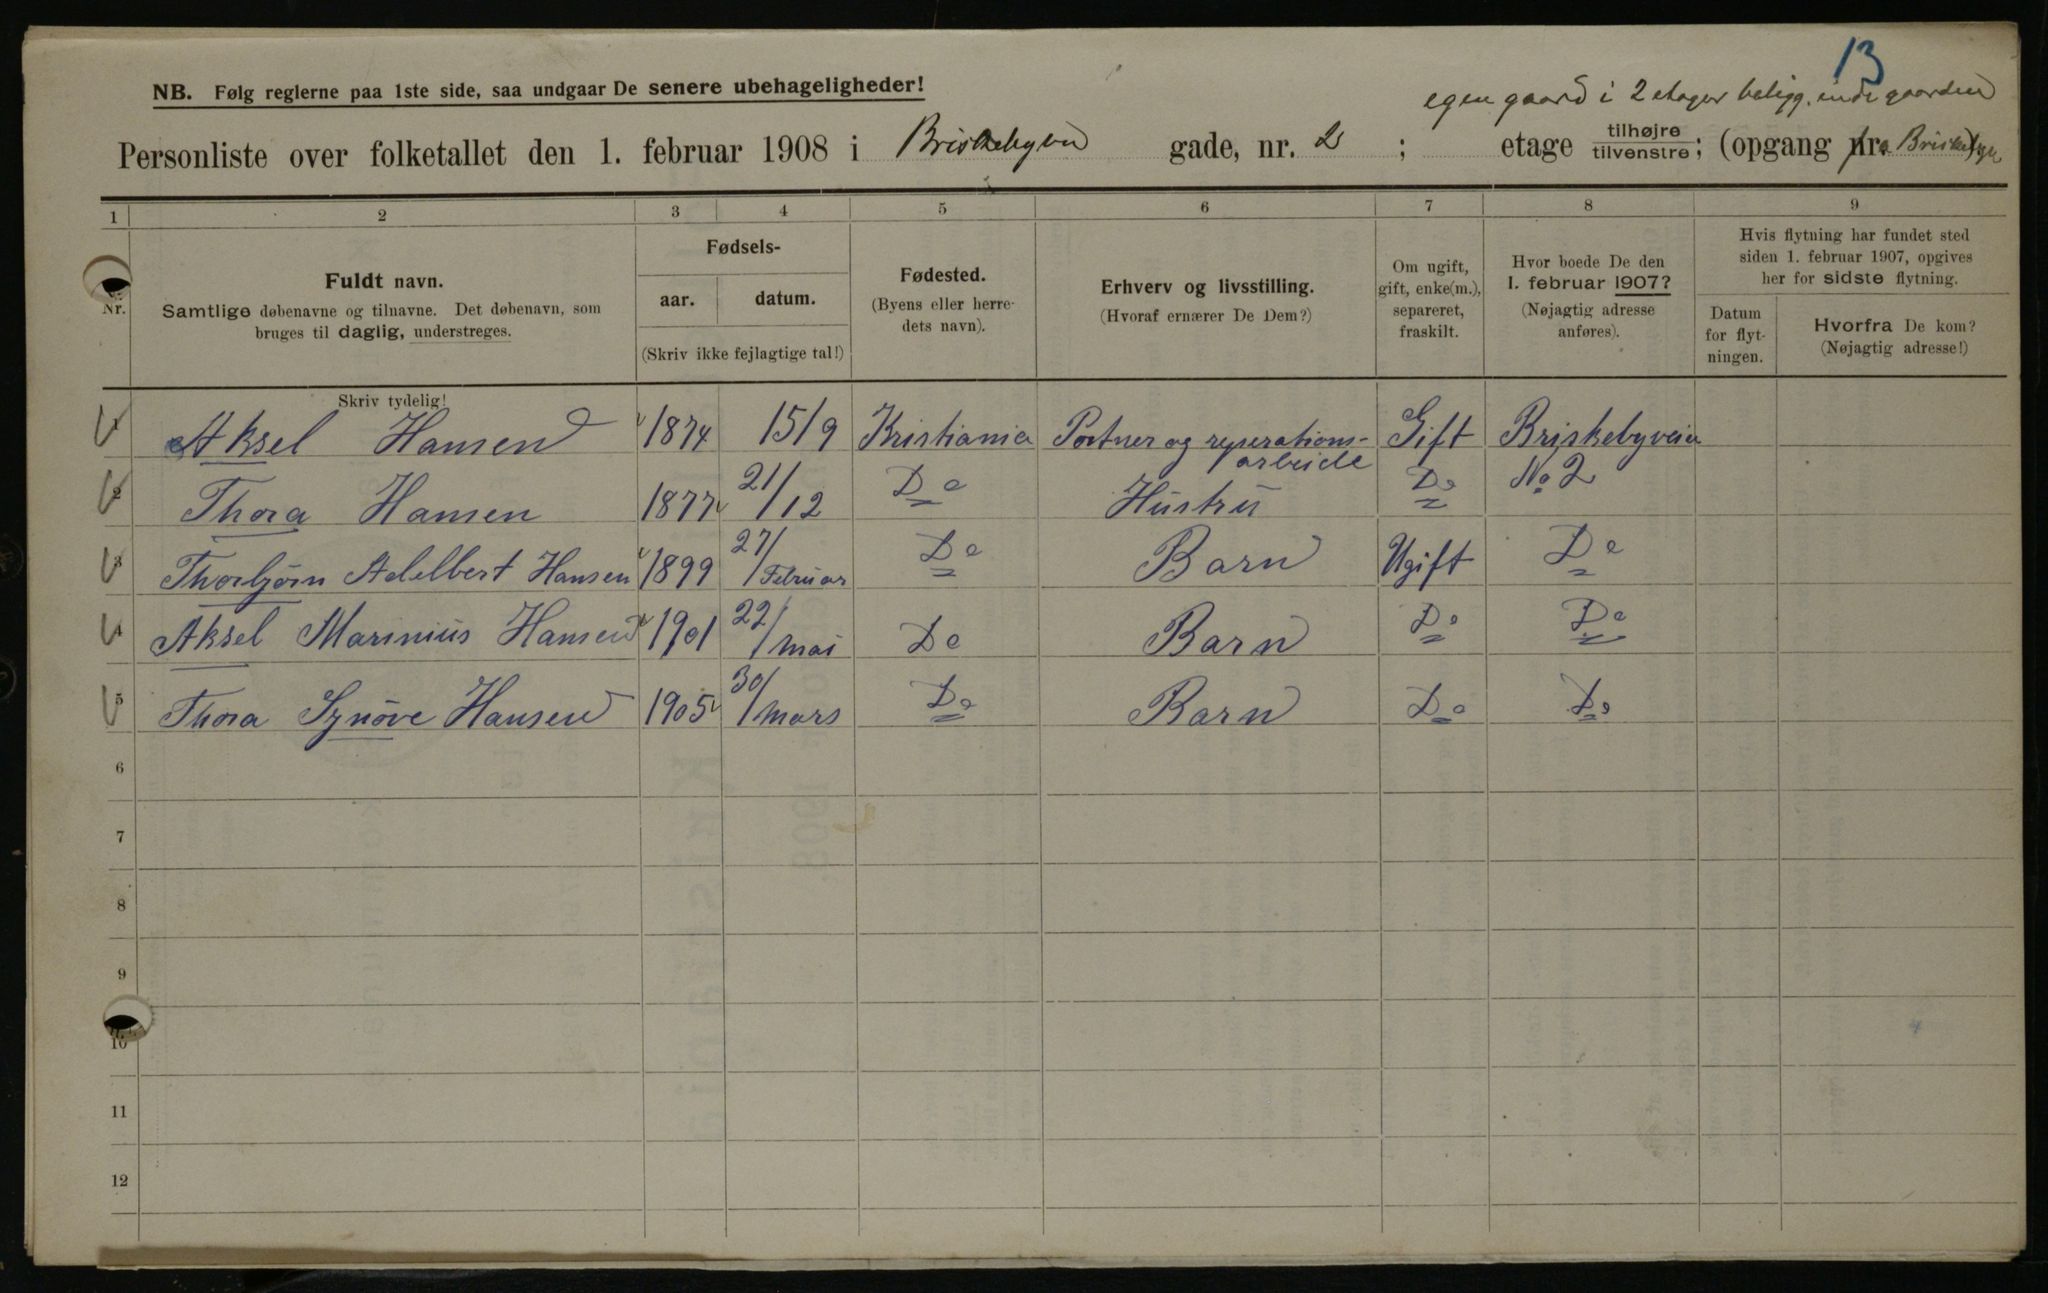 13
NB. Følg reglerne paa 1ste side, saa undgaar De senere ubehageligheder!
egen gaard i 2 etager beligg. inde gaarden
Personliste over folketallet den 1. februar 1908 i Briskebyvn gade, nr. 2 ; etage tilhøjre tilvenstre; (opgang fra Briskebyvn)
1 2 3 4 5 6 7 8 9
Nr.
Fuldt navn.
Samtlige døbenavne og tilnavne. Det døbenavn, som
bruges til daglig, understreges.
Fødsels-
aar. datum.
(Skriv ikke fejlagtige tal!)
Fødested.
(Byens eller herre-
dets navn).
Erhverv og livsstilling.
(Hvoraf ernærer De Dem?)
Om ugift,
gift, enke(m.),
separeret,
fraskilt.
Hvor boede De den
1. februar 1907?
(Nøjagtig adresse
anføres).
Hvis flytning har fundet sted
siden 1. februar 1907, opgives
her for sidste flytning.
Datum
for flyt-
ningen.
Hvorfra De kom?
(Nøjagtig adresse!)
Skriv tydelig!
1 Aksel Hansen 1874 15/9 Kristiania Portner og reperations- Gift Briskebyveien
arbeide
2 Thora Hansen 1877 21/12 Do Hustru Do No 2
3 Thorbjørn Adelbert Hansen 1899 27/Februar Do Barn Ugift Do
4 Aksel Marinius Hansen 1901 22/mai Do Barn Do Do
5 Thora Synøve Hansen 1905 30/mars Do Barn Do Do
6
7
8
9
10
11
12